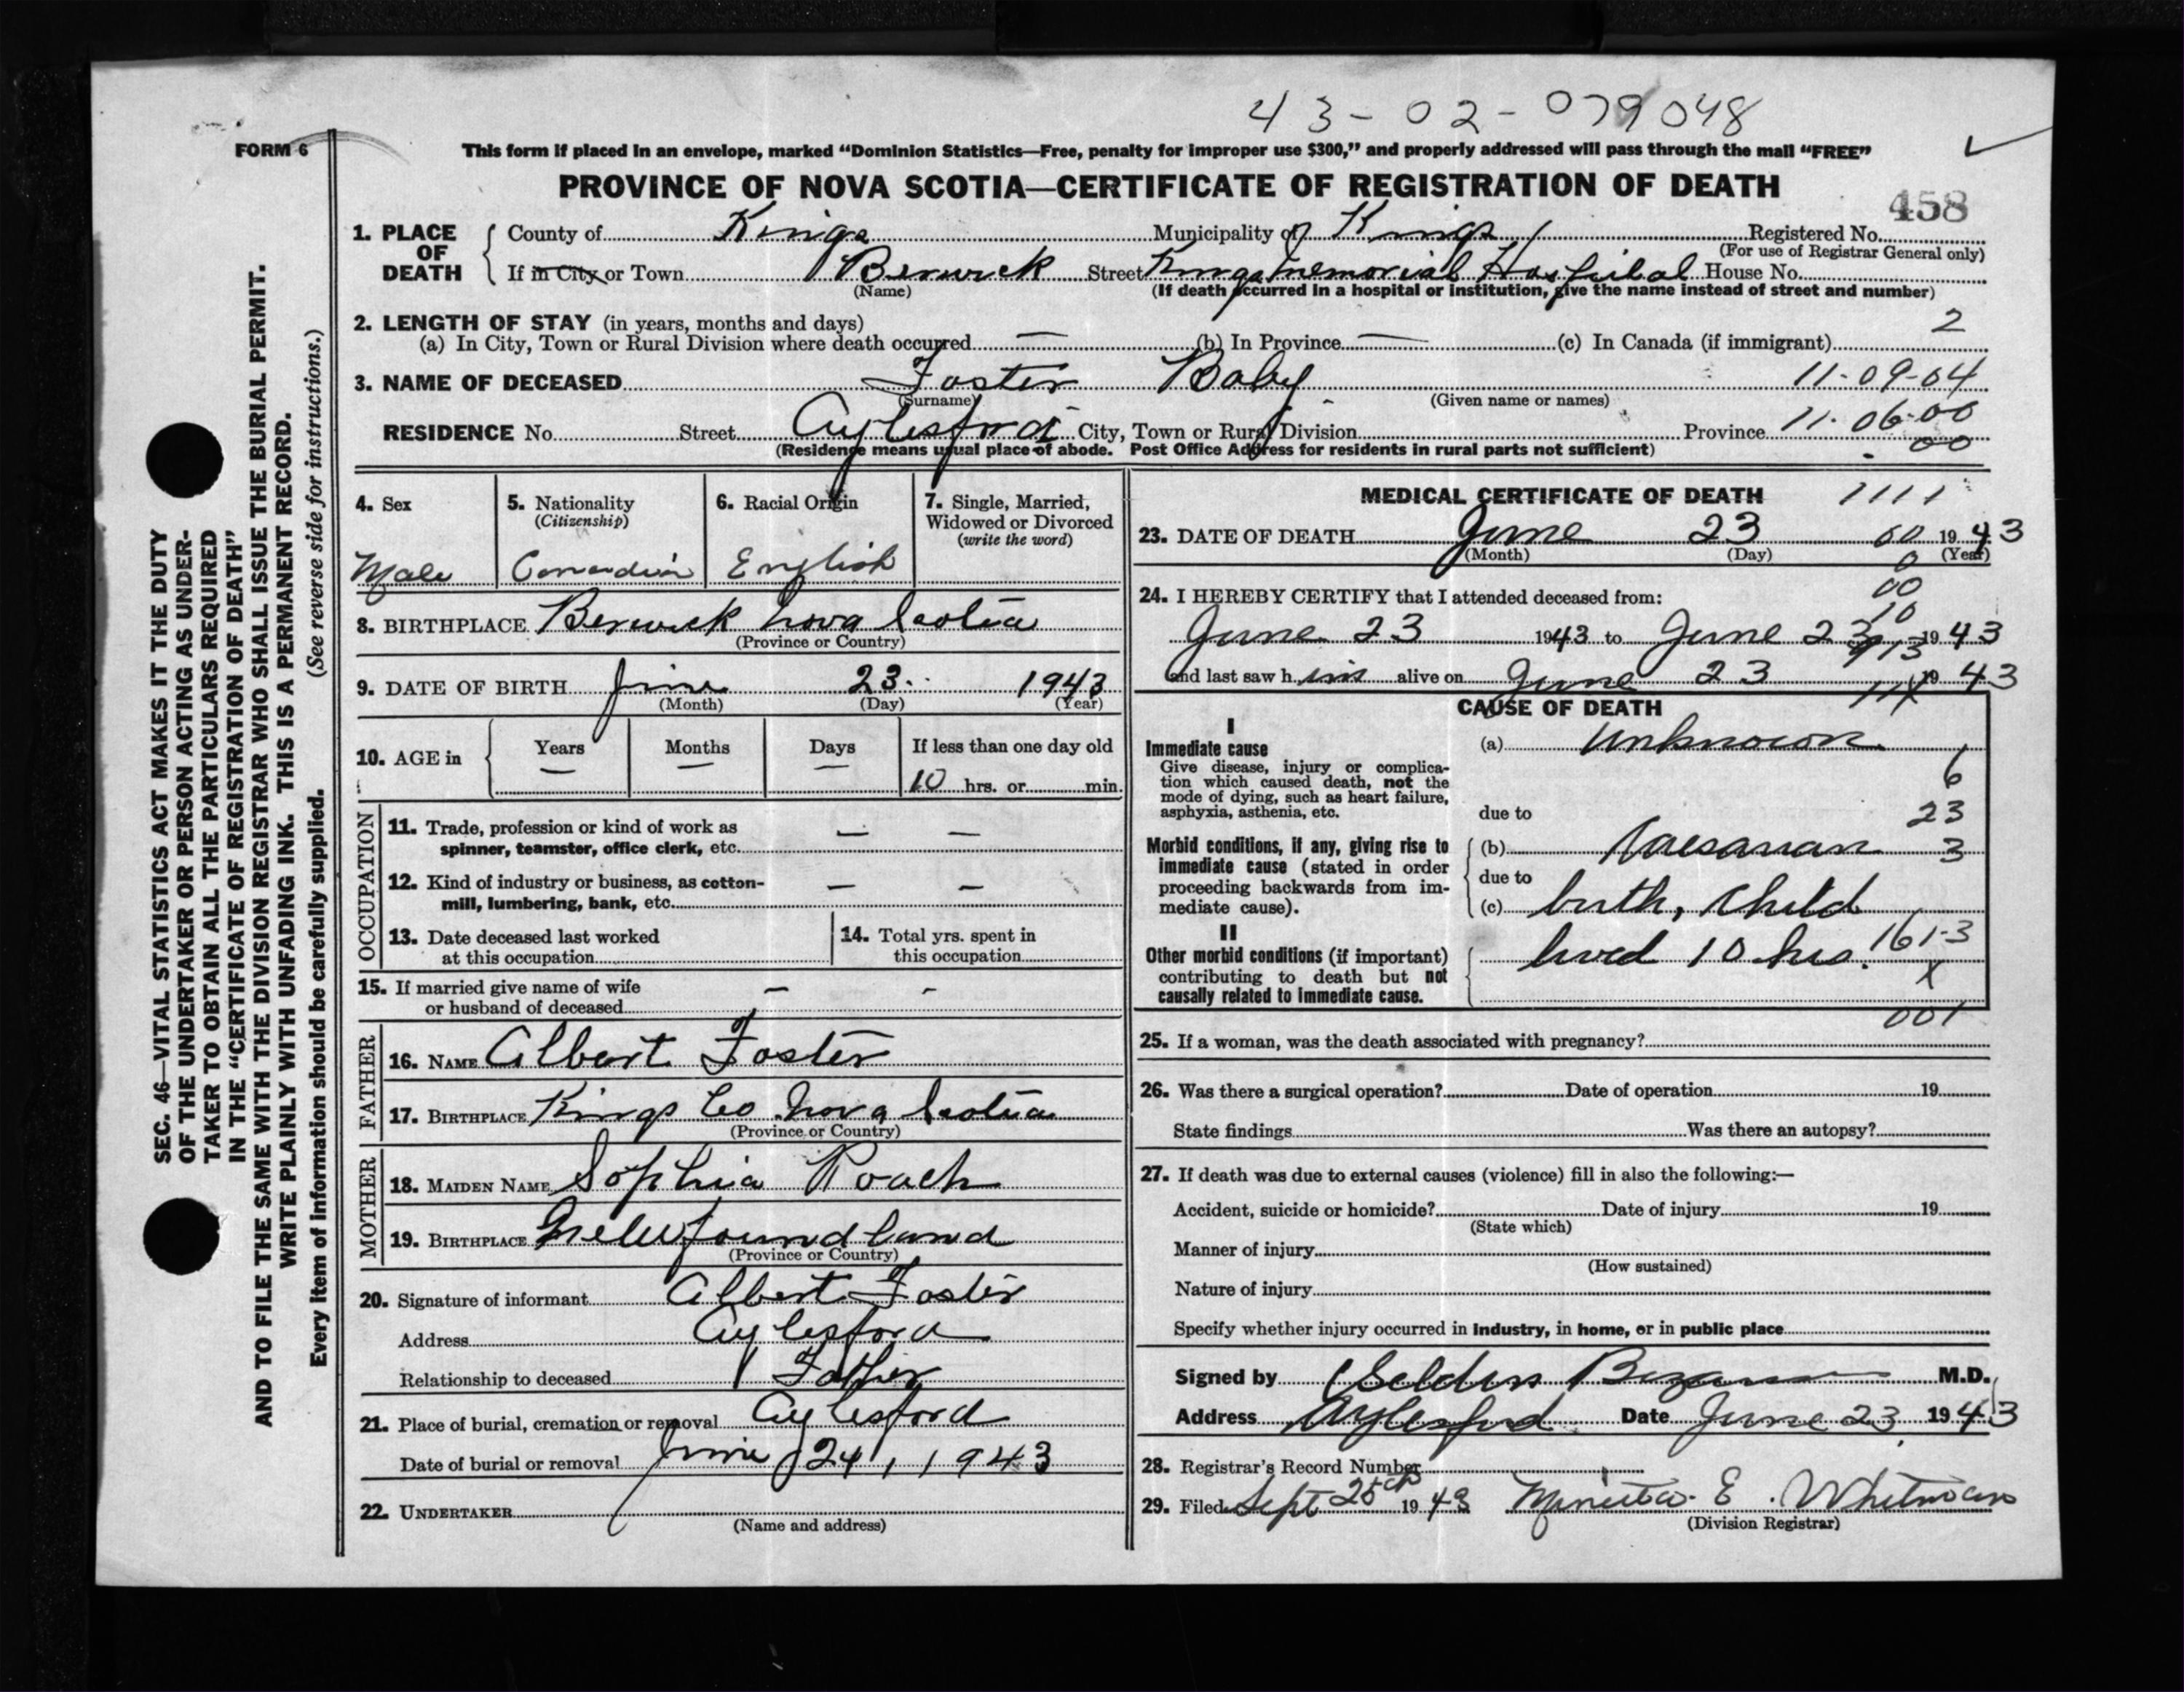 43-02-079048
FORM 6
This form if placed in an envelope, marked “Dominion Statistics—Free, penalty for improper use $300,” and properly addressed will pass through the mail “FREE”
PROVINCE OF NOVA SCOTIA—CERTIFICATE OF REGISTRATION OF DEATH
458
1. PLACE OF DEATH County of Kings Municipality of Kings Registered No.
(For use of Registrar General only)
If in City or Town Berwick Street Kings Memorial Hospital House No.
(Name) (If death occurred in a hospital or institution, give the name instead of street and number)
2. LENGTH OF STAY (in years, months and days) 2
(a) In City, Town or Rural Division where death occurred — (b) In Province — (c) In Canada (if immigrant)
3. NAME OF DECEASED Foster Baby 11-09-04
(Surname) (Given name or names)
RESIDENCE No. Street Aylesford City, Town or Rural Division Province 11-06-00
00
(Residence means usual place of abode. Post Office Address for residents in rural parts not sufficient)
4. Sex
Male
5. Nationality
(Citizenship)
Canadian
6. Racial Origin
English
7. Single, Married,
Widowed or Divorced
(write the word)
8. BIRTHPLACE Berwick Nova Scotia
(Province or Country)
9. DATE OF BIRTH June 23 1943
(Month) (Day) (Year)
10. AGE in Years Months Days If less than one day old
— — — 10 hrs. or min.
OCCUPATION
11. Trade, profession or kind of work as — —
spinner, teamster, office clerk, etc.
12. Kind of industry or business, as cotton- — —
mill, lumbering, bank, etc.
13. Date deceased last worked
at this occupation
14. Total yrs. spent in
this occupation
15. If married give name of wife — -
or husband of deceased
FATHER
16. NAME Albert Foster
17. BIRTHPLACE Kings Co Nova Scotia
(Province or Country)
MOTHER
18. MAIDEN NAME Sophia Roach
19. BIRTHPLACE Newfoundland
(Province or Country)
20. Signature of informant Albert Foster
Address Aylesford
Relationship to deceased Father
21. Place of burial, cremation or removal Aylesford
Date of burial or removal June 24, 1943
22. UNDERTAKER
(Name and address)
MEDICAL CERTIFICATE OF DEATH 1111
23. DATE OF DEATH June 23 60 1943
(Month) (Day) (Year)
0
00
24. I HEREBY CERTIFY that I attended deceased from:
10
June 23 1943 to June 23 1943
and last saw h im alive on June 23 1943
CAUSE OF DEATH
I
Immediate cause
Give disease, injury or complica-
tion which caused death, not the
mode of dying, such as heart failure,
asphyxia, asthenia, etc.
(a) Unknown
6
23
due to
Morbid conditions, if any, giving rise to
immediate cause (stated in order
proceeding backwards from im-
mediate cause).
(b) Caesarian 3
due to
(c) birth, child
II
Other morbid conditions (if important)
contributing to death but not
causally related to immediate cause.
lived 10 hrs. 161-3
X
001
25. If a woman, was the death associated with pregnancy?
26. Was there a surgical operation? Date of operation 19
State findings Was there an autopsy?
27. If death was due to external causes (violence) fill in also the following:—
Accident, suicide or homicide? Date of injury 19
(State which)
Manner of injury
(How sustained)
Nature of injury
Specify whether injury occurred in industry, in home, or in public place
Signed by M.D.
Address Aylesford Date June 23 1943
28. Registrar's Record Number
29. Filed Sept 25th 1943 E. Whitman
(Division Registrar)
SEC. 46—VITAL STATISTICS ACT MAKES IT THE DUTY
OF THE UNDERTAKER OR PERSON ACTING AS UNDER-
TAKER TO OBTAIN ALL THE PARTICULARS REQUIRED
IN THE “CERTIFICATE OF REGISTRATION OF DEATH”
AND TO FILE THE SAME WITH THE DIVISION REGISTRAR WHO SHALL ISSUE THE BURIAL PERMIT.
WRITE PLAINLY WITH UNFADING INK. THIS IS A PERMANENT RECORD.
Every item of information should be carefully supplied. (See reverse side for instructions.)